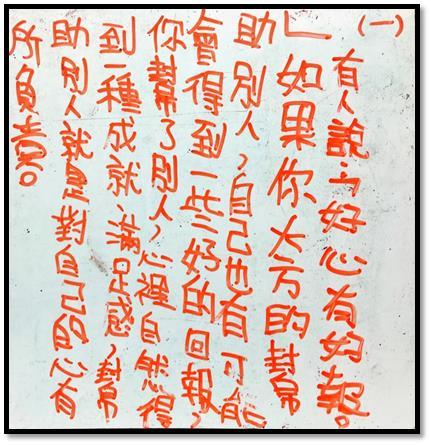 (一)
有人說:「好心有好報。
」如果你大方的幫
助別人,自己也有可能
會得到一些好的回報,
你幫了別人,心裡自然得
到一種成就、滿足感,幫
助別人就是對自己的心有
所負責。